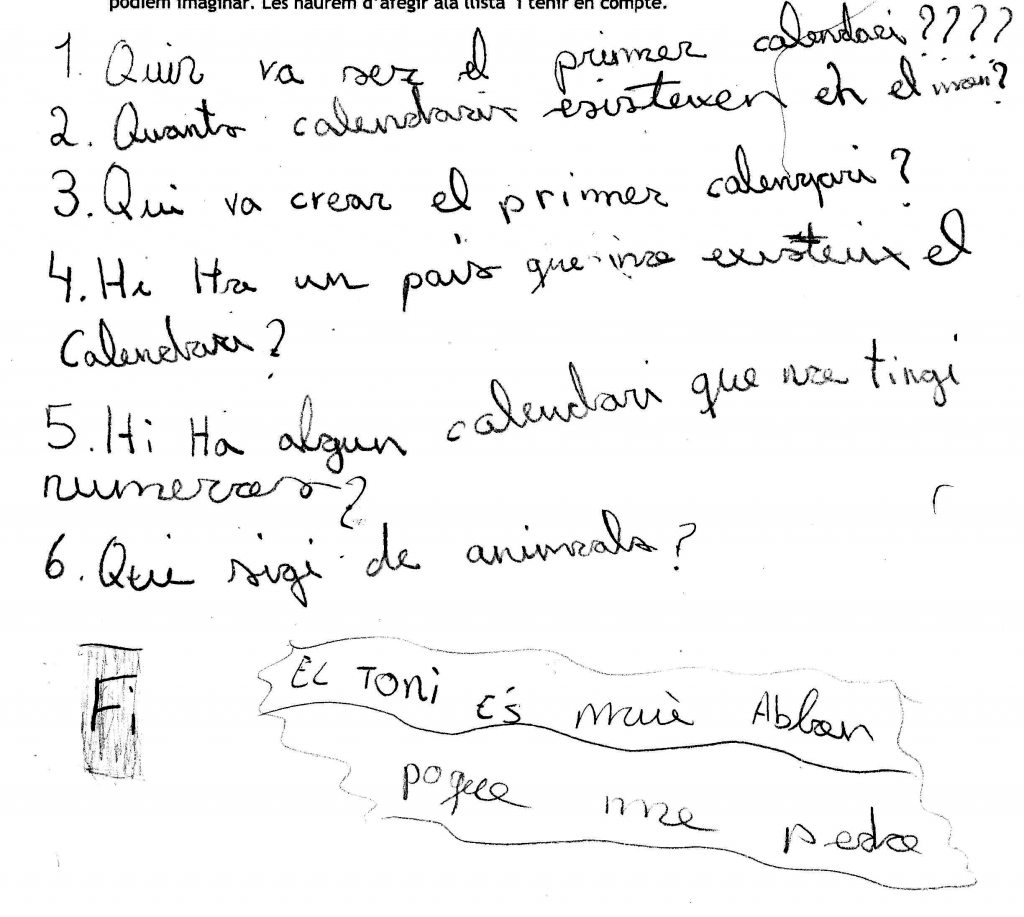 podiem imaginar. Les haurem d'afegir ala llista i tenir en compte.
1. Quin va ser el primer calendari????
2. Quants calendaris existeixen en el mon?
3. Qui va crear el primer calenyari?
4. Hi Ha un país que no existeix el
Calendari?
5. Hi Ha algun calendari que no tingi
numeros?
6. Que sigi de animals?
Fi
EL Toni És